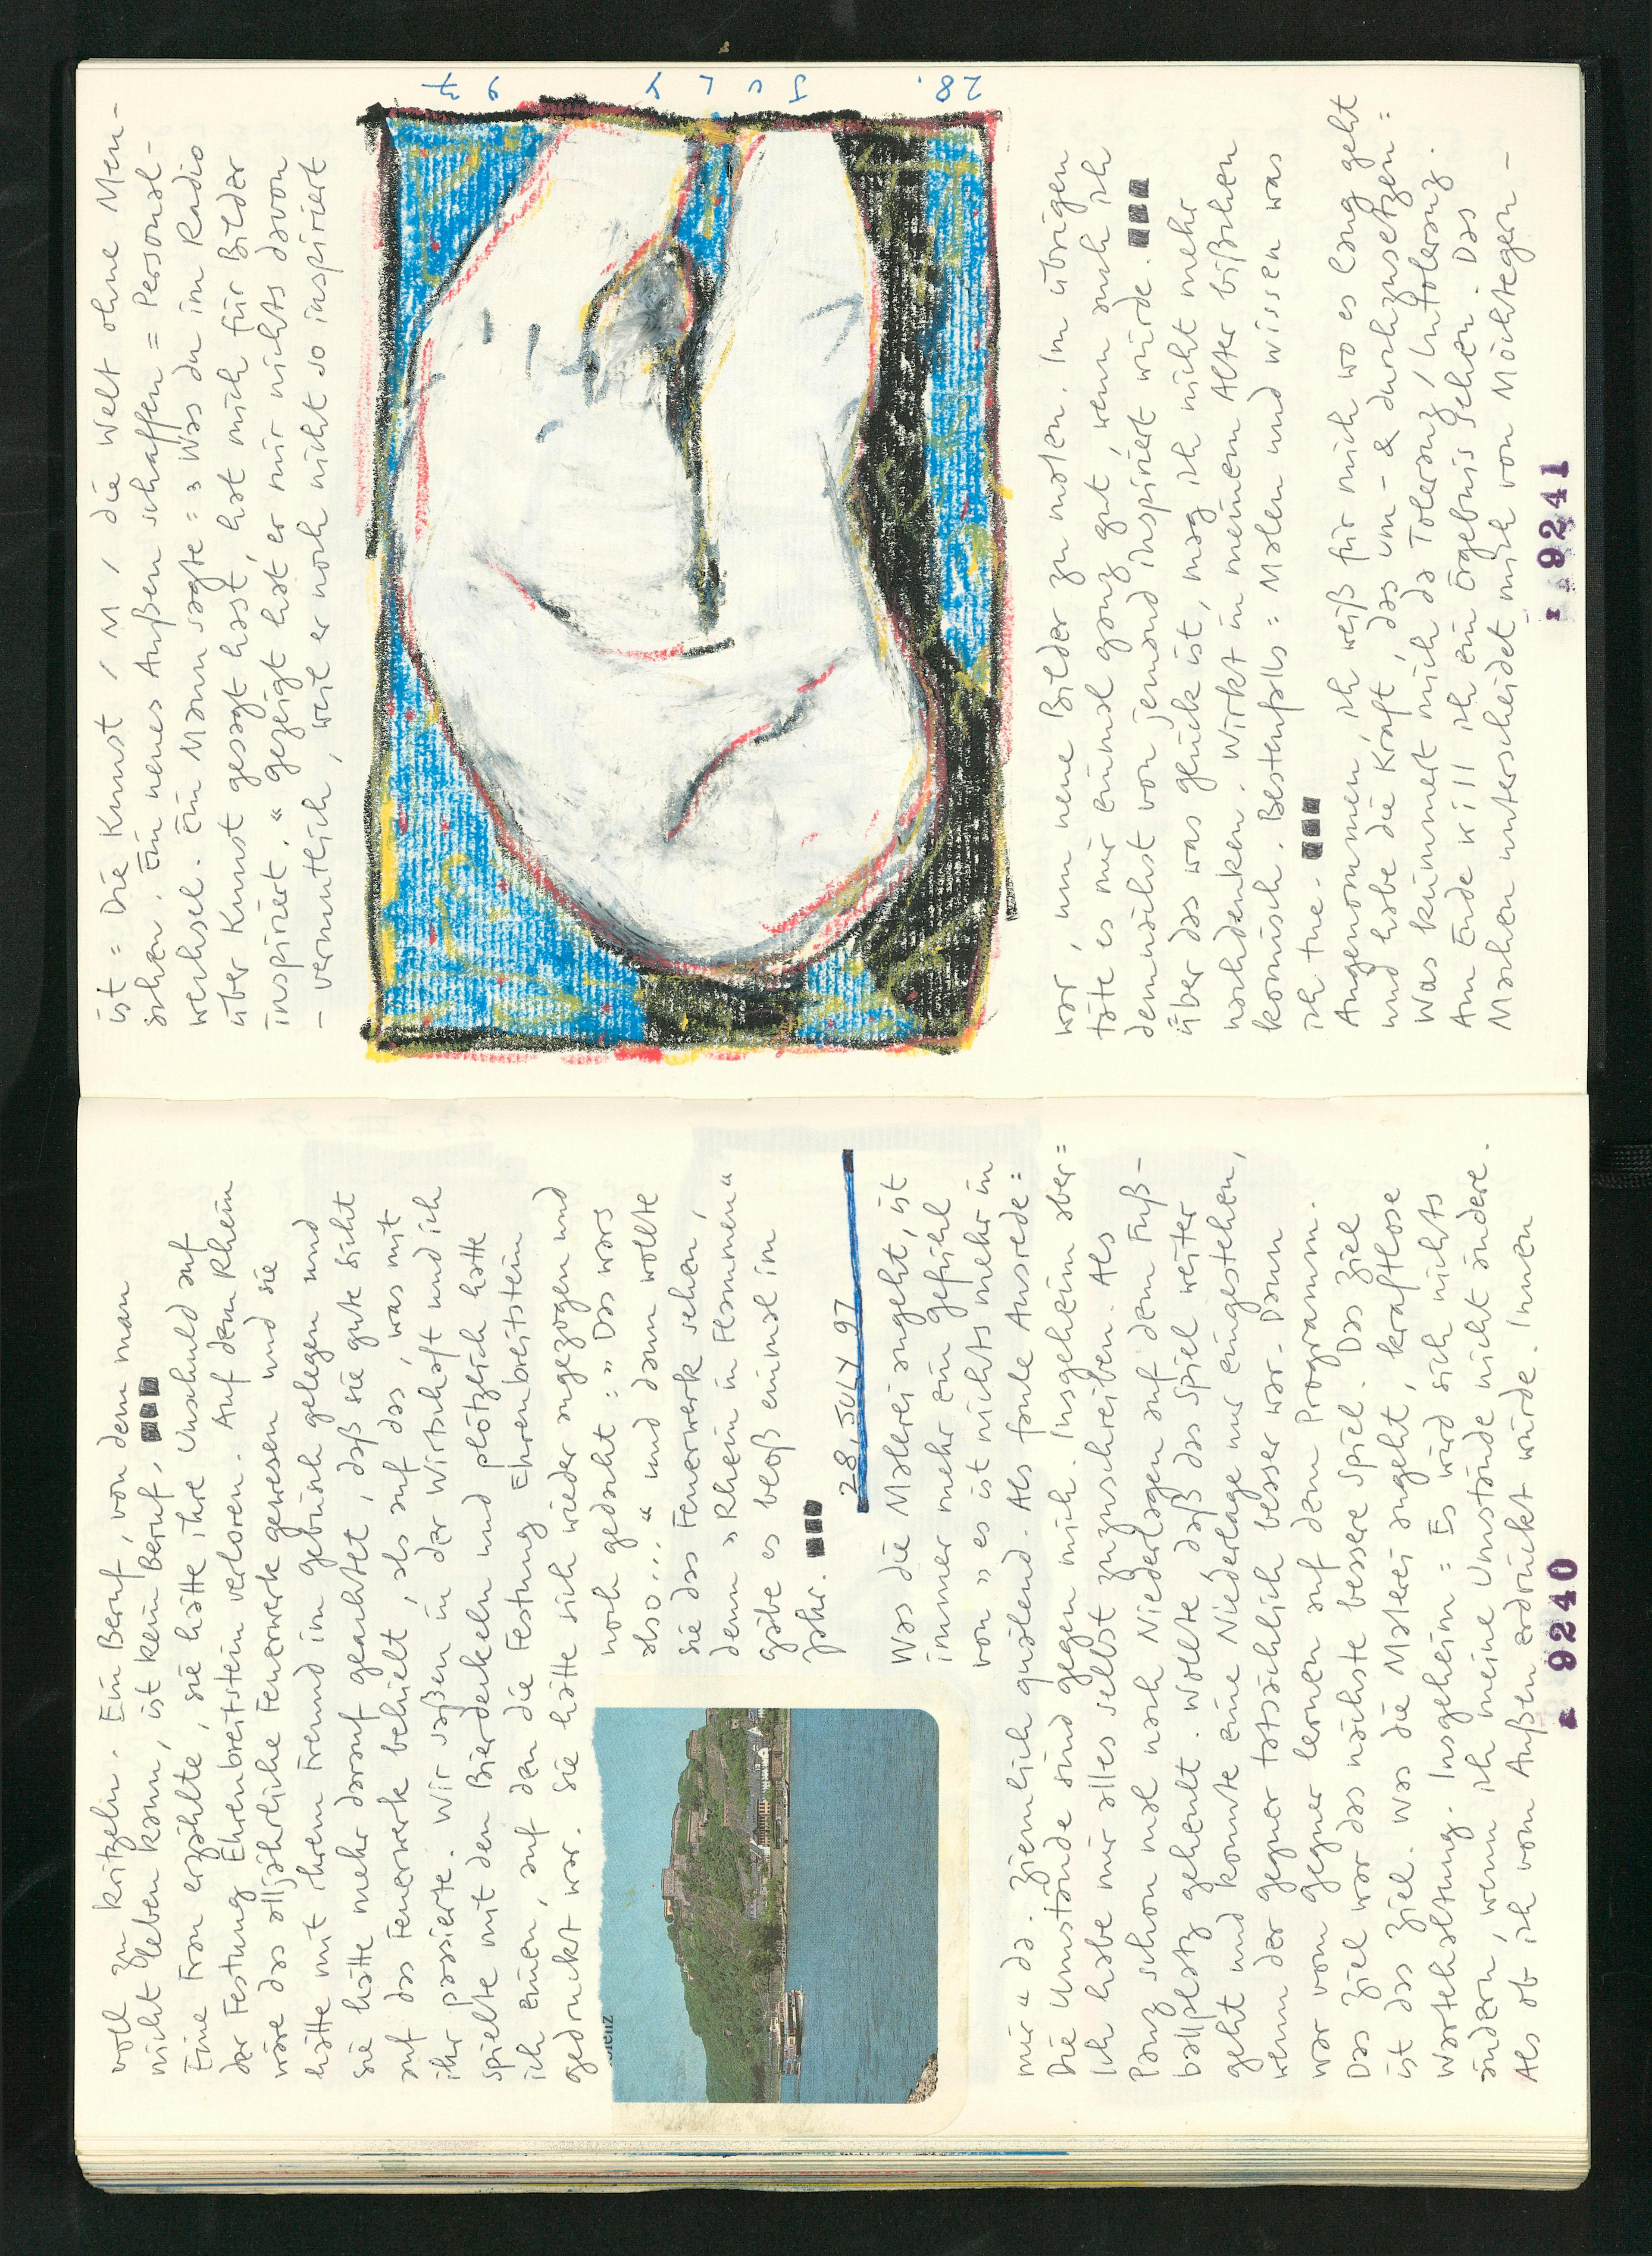 voll zu kritzeln. Ein Beruf, von dem man
nicht leben kann, ist kein Beruf.
Eine Frau erzählte, sie hätte ihre Unschuld auf
der Festung Ehrenbreitstein verloren. Auf dem Rhein
wäre das alljährliche Feuerwerk gewesen und sie
hätte mit ihrem Freund im Gebüsch gelegen und
sie hätte mehr darauf geachtet, daß sie gute Sicht
auf das Feuerwerk behielt, als auf das, was mit
ihr passierte. Wir saßen in der Wirtschaft und ich
spielte mit den Bierdeckeln und plötzlich hatte
ich einen, auf den die Festung Ehrenbreitstein
gedruckt war. Sie hätte sich wieder angezogen und
noch gedacht: » Das wars
also... « und dann wollte
sie das Feuerwerk sehen,
denn » Rhein in Flammen «
gäbe es bloß einmal im
Jahr.
28. JULY 97
Was die Malerei angeht, ist
immer mehr ein Gefühl
von » es ist nichts mehr in
mir « da. Ziemlich quälend. Als faule Ausrede =
Die Umstände sind gegen mich. Insgeheim aber =
Ich habe mir alles selbst zuzuschreiben. Als
Panz schon mal nach Niederlagen auf dem Fuß-
ballplatz geheult. Wollte, daß das Spiel weiter
geht und konnte eine Niederlage nur eingestehen,
wenn der Gegner tatsächlich besser war. Dann
war vom Gegner lernen auf dem Programm.
Das Ziel war das nächste bessere Spiel. Das Ziel
ist das Ziel. Was die Malerei angeht, kraftlose
Wartehaltung. Insgeheim = Es wird sich nichts
ändern, wenn ich meine Umstände nicht ändere.
Als ob ich von Außen erdrückt würde. Innen
9240
ist = Die Kunst / M / die Welt ohne Men-
schen. Ein neues Außen schaffen = Personal-
wechsel. Ein Mann sagte = » Was du im Radio
über Kunst gesagt hast, hat mich für Bilder
inspiriert. « gezeigt hat er mir nichts davon
- vermutlich, weil er noch nicht so inspiriert
28. JULY 97
war, um neue Bilder zu malen. Im übrigen
täte es mir einmal ganz gut, wenn auch ich
demnächst von jemand inspiriert würde.
über das was Glück ist, mag ich nicht mehr
nachdenken. Wirkt in meinem Alter bißchen
komisch. Bestenfalls = Malen und wissen was
ich tue.
Angenommen, ich weiß für mich wo es lang geht
und habe die Kraft, das um - & durchzusetzen =
Was kümmert mich da Toleranz / Intoleranz.
Am Ende will ich ein Ergebnis sehen. Das
Machen unterscheidet mich von Möchtegern-
9241